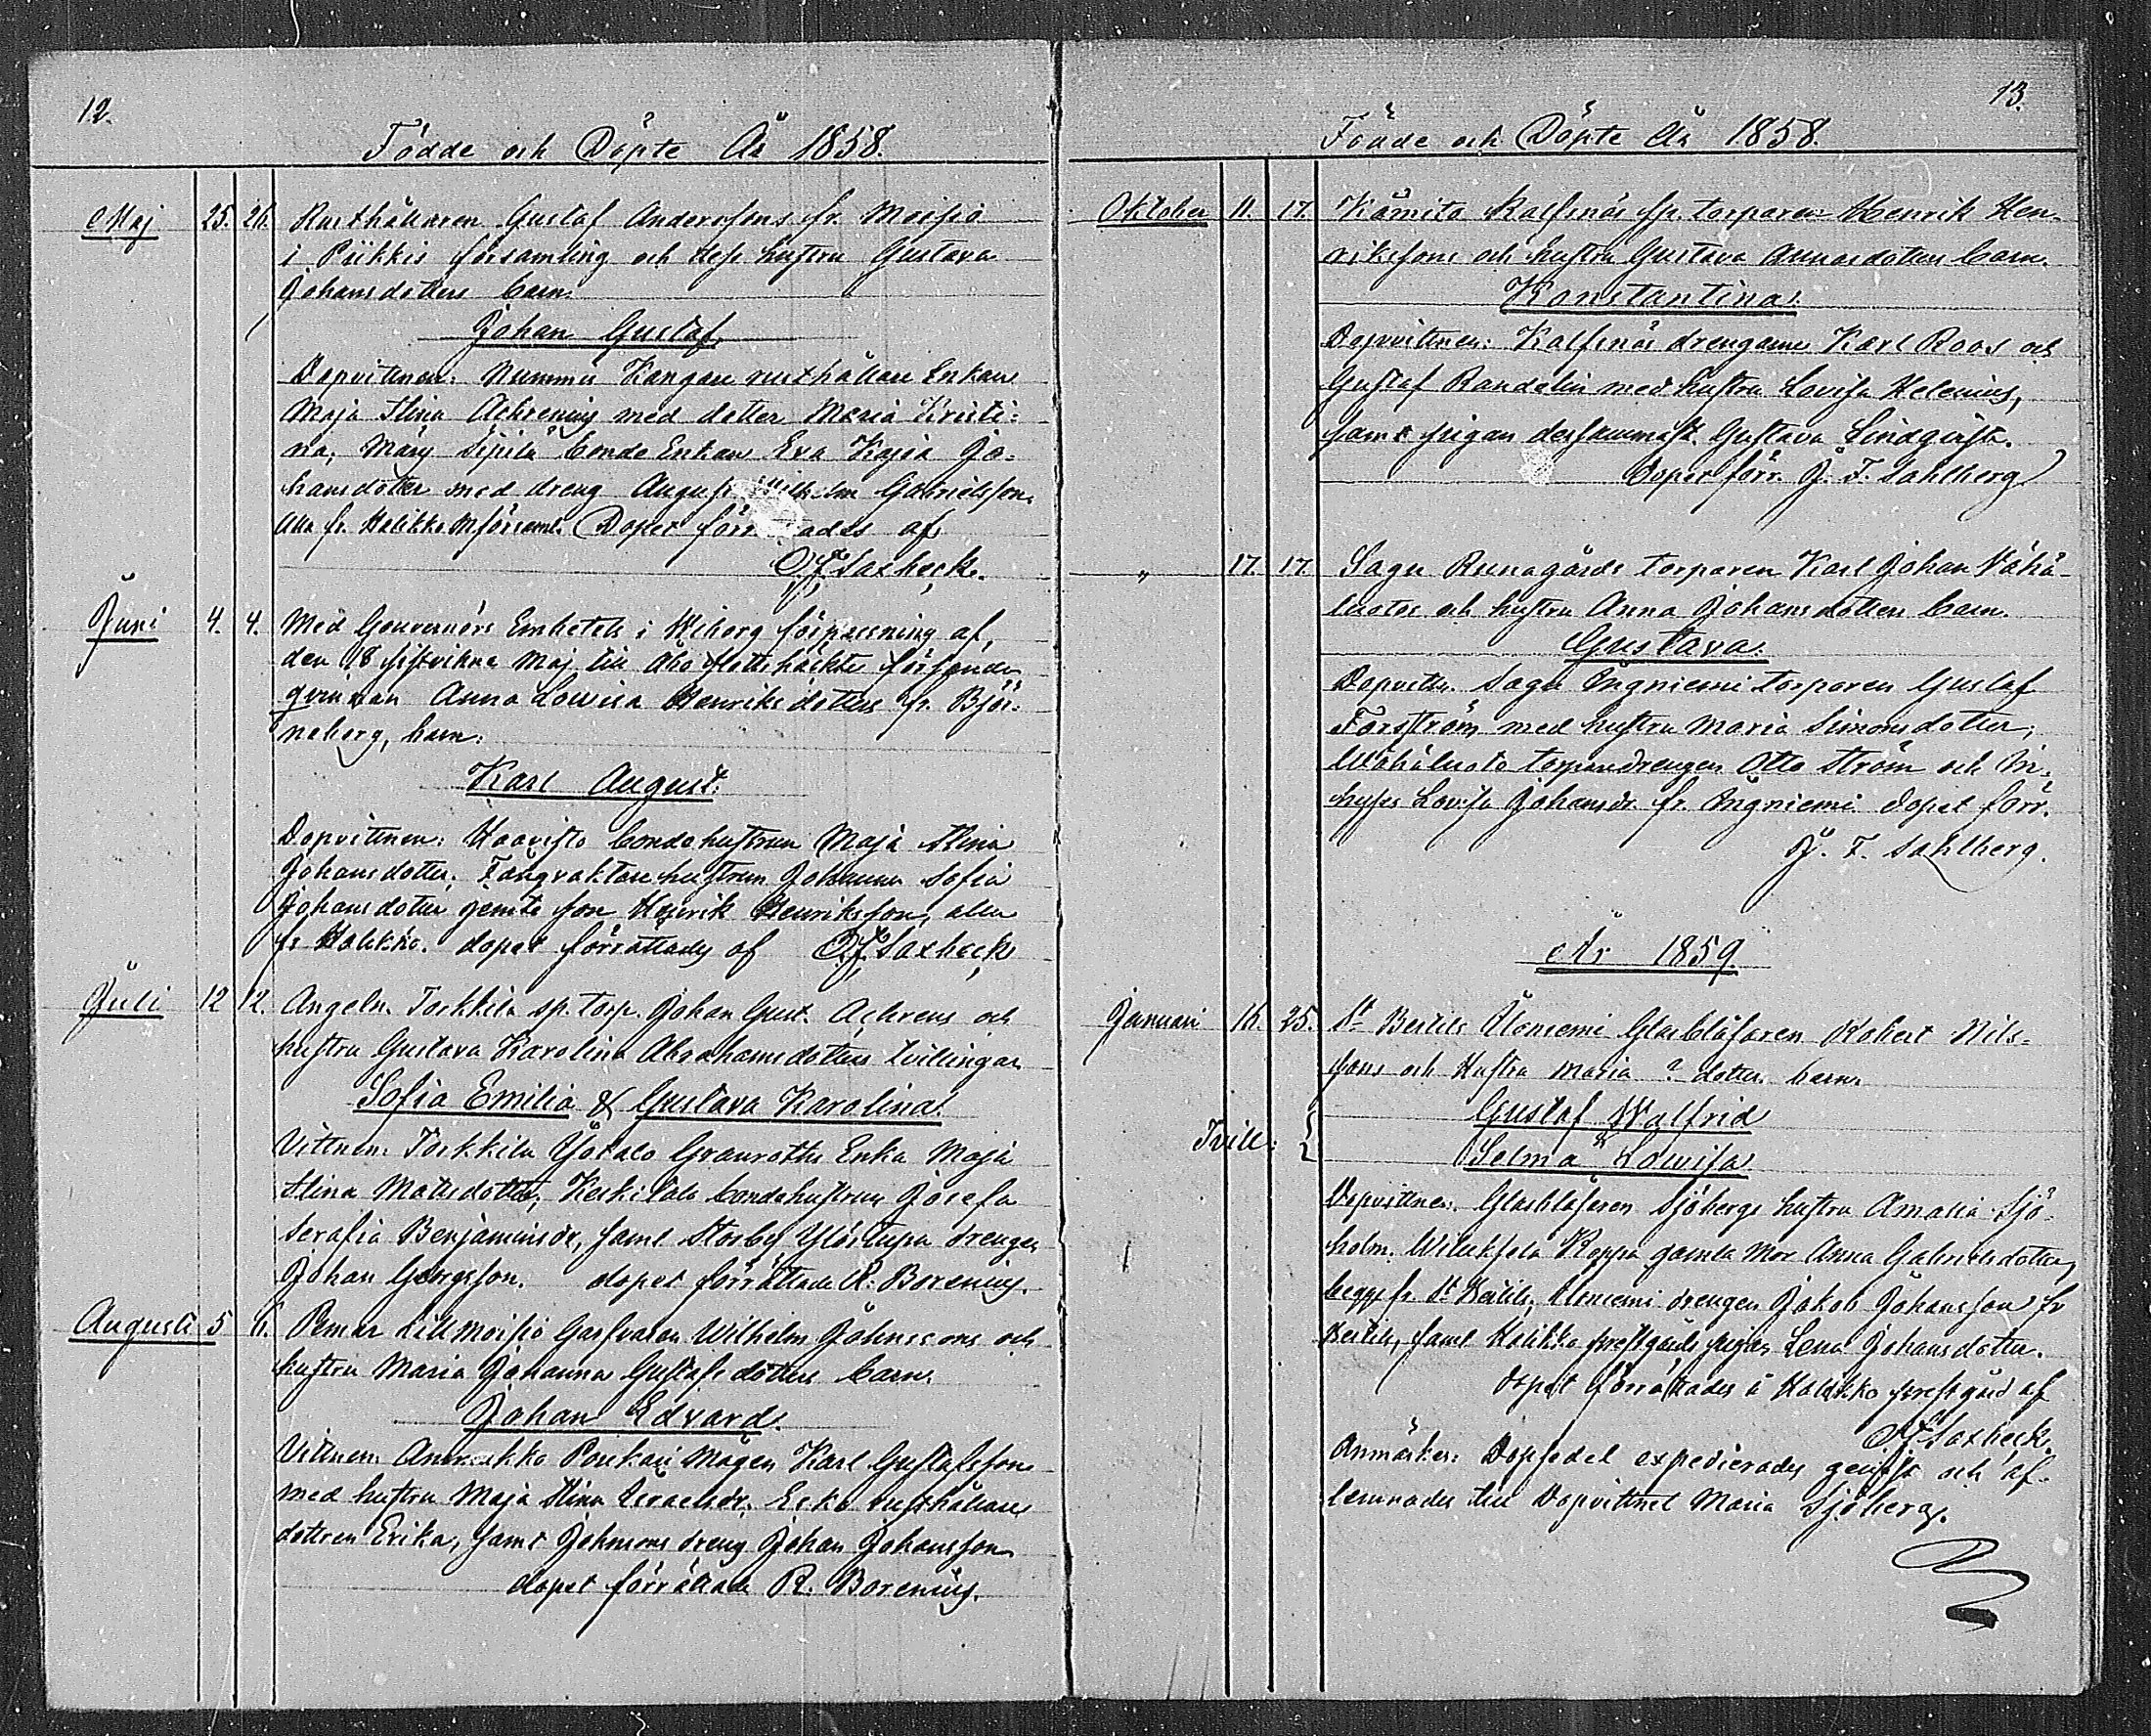 12.
Födde och Döpte År 1858.
Maj 25. 26. Rusthållaren Gustaf Anderssons fr. Moisio
i Piikkis församling och dess hustru Gustava
Johansdotters barn.
Johan Gustaf.
Dopvittnen: Nummis Kangare rusthållare Enkan
Maja Stina Achrenius med dotter Maria Kristi-
na, Märy Sipilä bonde Enkan Eva Kajsa Jo-
hansdotter med dreng August Wilhelm Gabrielsson.
alla fr. Halikko Mförsaml. Dopet förrättades af
Saxbeck.
Juni 4. 4. Med Gouvernörs Embetets i Wiborg förpassning af
den 18 sistvikne Maj till Åbo slottshäckte försände
qvinnan Anna Lowisa Henriksdotters fr. Björ-
neborg, barn:
Karl August.
Dopvittnen: Haavisto bondehustrun Maja Stina
Johansdotter, Fångvaktare hustrun Johanna Sofia
Johansdotter jemte son Henrik Henriksson, alla
fr Halikko. dopet förrättades af Saxbeck
Juli 12 12. Angeln. Torkkila sp. torp. Johan Gust. Achrens och
hustru Gustava Karolina Abrahamsdotters tvillingar
Sofia Emilia & Gustava Karolina.
Vittnen: Torkkila Ylötalo Granroths Enka Maja
Stina Mattsdotter, Keskitalo bondehustrun Josefa
Serafia Benjaminsdr, samt Storby Ylöstupa drengen
Johan Georgsson. dopet förrättade R. Borenius.
Augusti 5 6. Pemar Lillmoisio Garfvaren Wilhelm Johnssons och
hustru Maria Johanna Gustafsdotters barn.
Johan Edvard.
Vittnen: Porikari Mågen Karl Gustafsson
med hustru Maja Stina Israelsdr. Esko rusthållare
dottren Erika, samt Johnsons dreng Johan Johansson
dopet förrättade R. Borenius.
13.
Födde och Döpte År 1858.
Oktober 11. 17. Kimito Kalfsnäs sp. torparen Henrik Hen-
rikssons och hustru Gustava barn.
Konstantina.
Dopvittnen: Kalfsnäs drengarne Karl Roos och
Gustaf Randelin med hustru Lovisa Helenius,
samt pigan dersammast. Gustava Lindqvist.
Dopet förr. J. F. Sahlberg
" 17. 17. Sagu Runagårds torparen Karl Johan Vähä-
luotos och hustru Anna Johansdotters barn.
Gustava.
Dopvittn. Sagu Öngniemi torparen Gustaf
Forsström med hustru Maria Simonsdotter,
Wähäluoto torparedrengen Otto Ström och In-
hyses Lovisa Johansdr. fr. Öngniemi dopet förr.
J. F. Sahlberg.
År 1859.
Januari 16. 25. St Bertils Åloniemi Glasblåsaren Robert Nils-
sons och Hustru Maria ? dotter barn
Tvill: { Gustaf Walfrid
& Selma Lowisa
Dopvittnen: Glasblåseren Sjöbergs hustru Amalia Sjö-
holm. Koppa gamla Mor Anna Gabrielsdotter,
begge fr. St Bertils, Åloniemi drengen Jakob Johansson fr
Bertils, samt Halikko prestgårds pigan Lena Johansdotter.
Dopet förrättades å Halikko prestgård af
Saxbeck.
Anmärkn: Dopsedel expedierades genast och af-
lemnades till Dopvittnet Maria Sjöberg.